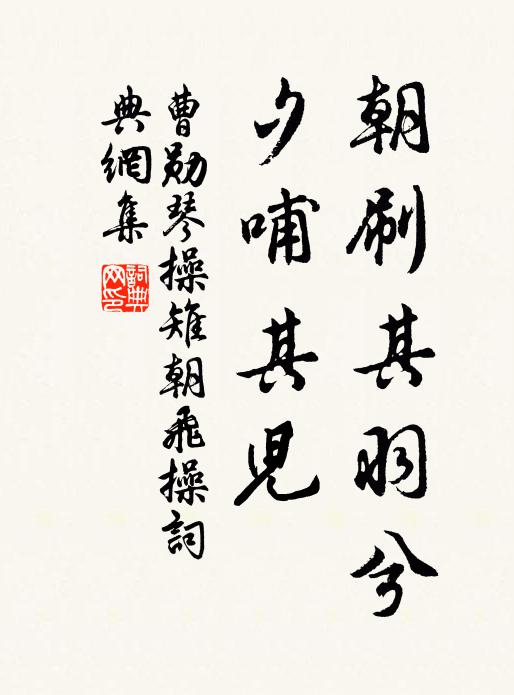 朝刷其羽兮
夕哺其児
曹勛琴操雉朝飛操詞
典網集
詞典
网印